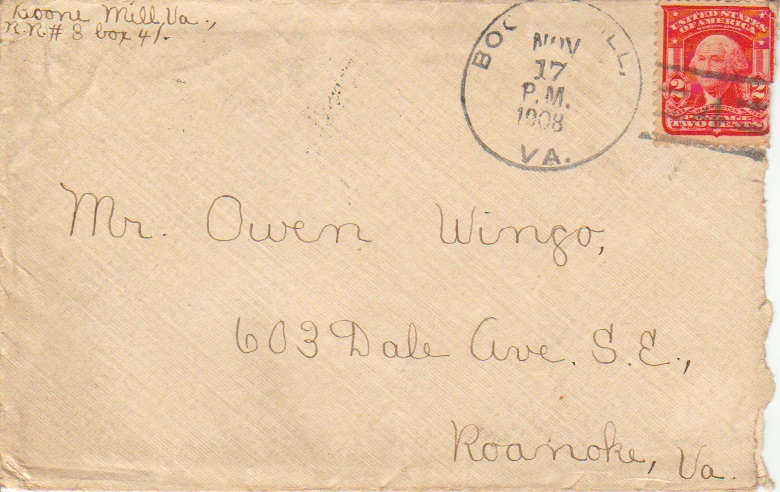 Boone Mill, Va.,
R.R. # 3 box 41.
NOV
17
P.M.
1908
VA.
UNITED STATES
OF AMERICA
2 2
POSTAGE
TWO CENTS
Mr. Owen Wingo,
603 Dale Ave. S.E.,
Roanoke, Va.